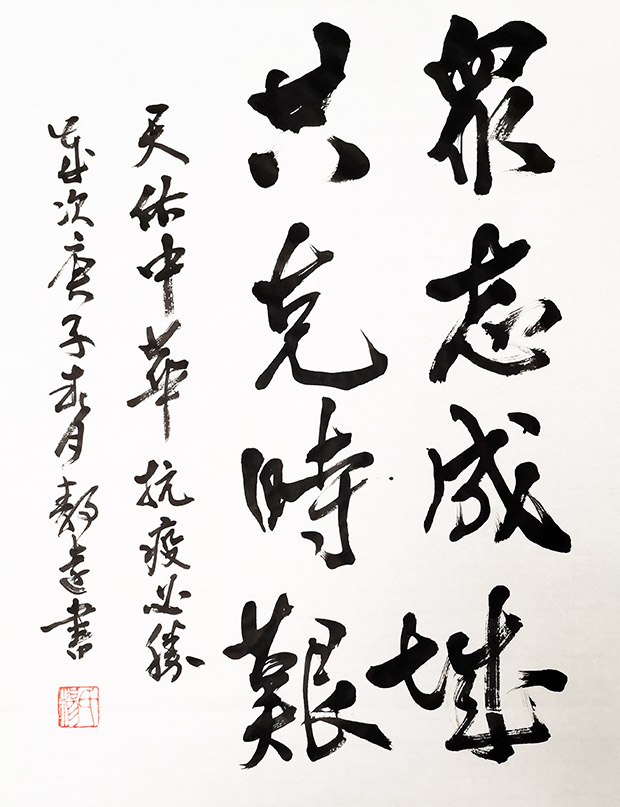 眾志成城
共克時艱
天佑中華 抗疫必勝
歲次庚子春月 書